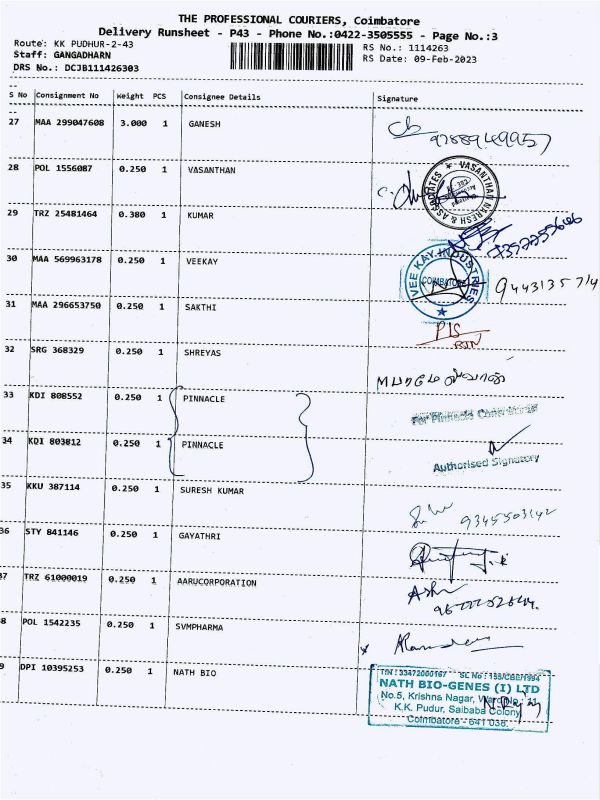 THE PROFESSIONAL COURIERS, Coimbatore
Delivery Runsheet - P43 - Phone No.:0422-3505555 - Page No.:3
Route: KK PUDHUR-2-43
RS No.: 1114263
Staff: GANGADHARN
RS Date: 09-Feb-2023
DRS No.: DCJB111426303
S No Consignment No Weight PCS Consignee Details Signature
27 MAA 299047608 3.000 1 GANESH
9788949957
28 POL 1556087 0.250 1 VASANTHAN
VASANTHAN NARESH & ASSOCIATES
29 TRZ 25481464 0.380 1 KUMAR
30 MAA 569963178 0.250 1 VEEKAY
VEE KAY INDUSTRIES
COIMBATORE
31 MAA 296653750 0.250 1 SAKTHI
32 SRG 368329 0.250 1 SHREYAS
33 KDI 808552 0.250 1 PINNACLE
For Pinnacle
34 KDI 803812 0.250 1 PINNACLE
Authorised Signatory
35 KKU 387114 0.250 1 SURESH KUMAR
36 STY 841146 0.250 1 GAYATHRI
37 TRZ 61000019 0.250 1 AARUCORPORATION
8 POL 1542235 0.250 1 SVMPHARMA
9 DPI 10395253 0.250 1 NATH BIO
TIN : 33472000167 SL No : 155/CBE/1994
NATH BIO-GENES (I) LTD
No.5, Krishna Nagar, Ward No : 11
K.K. Pudur, Saibaba Colony
Coimbatore - 641 038.